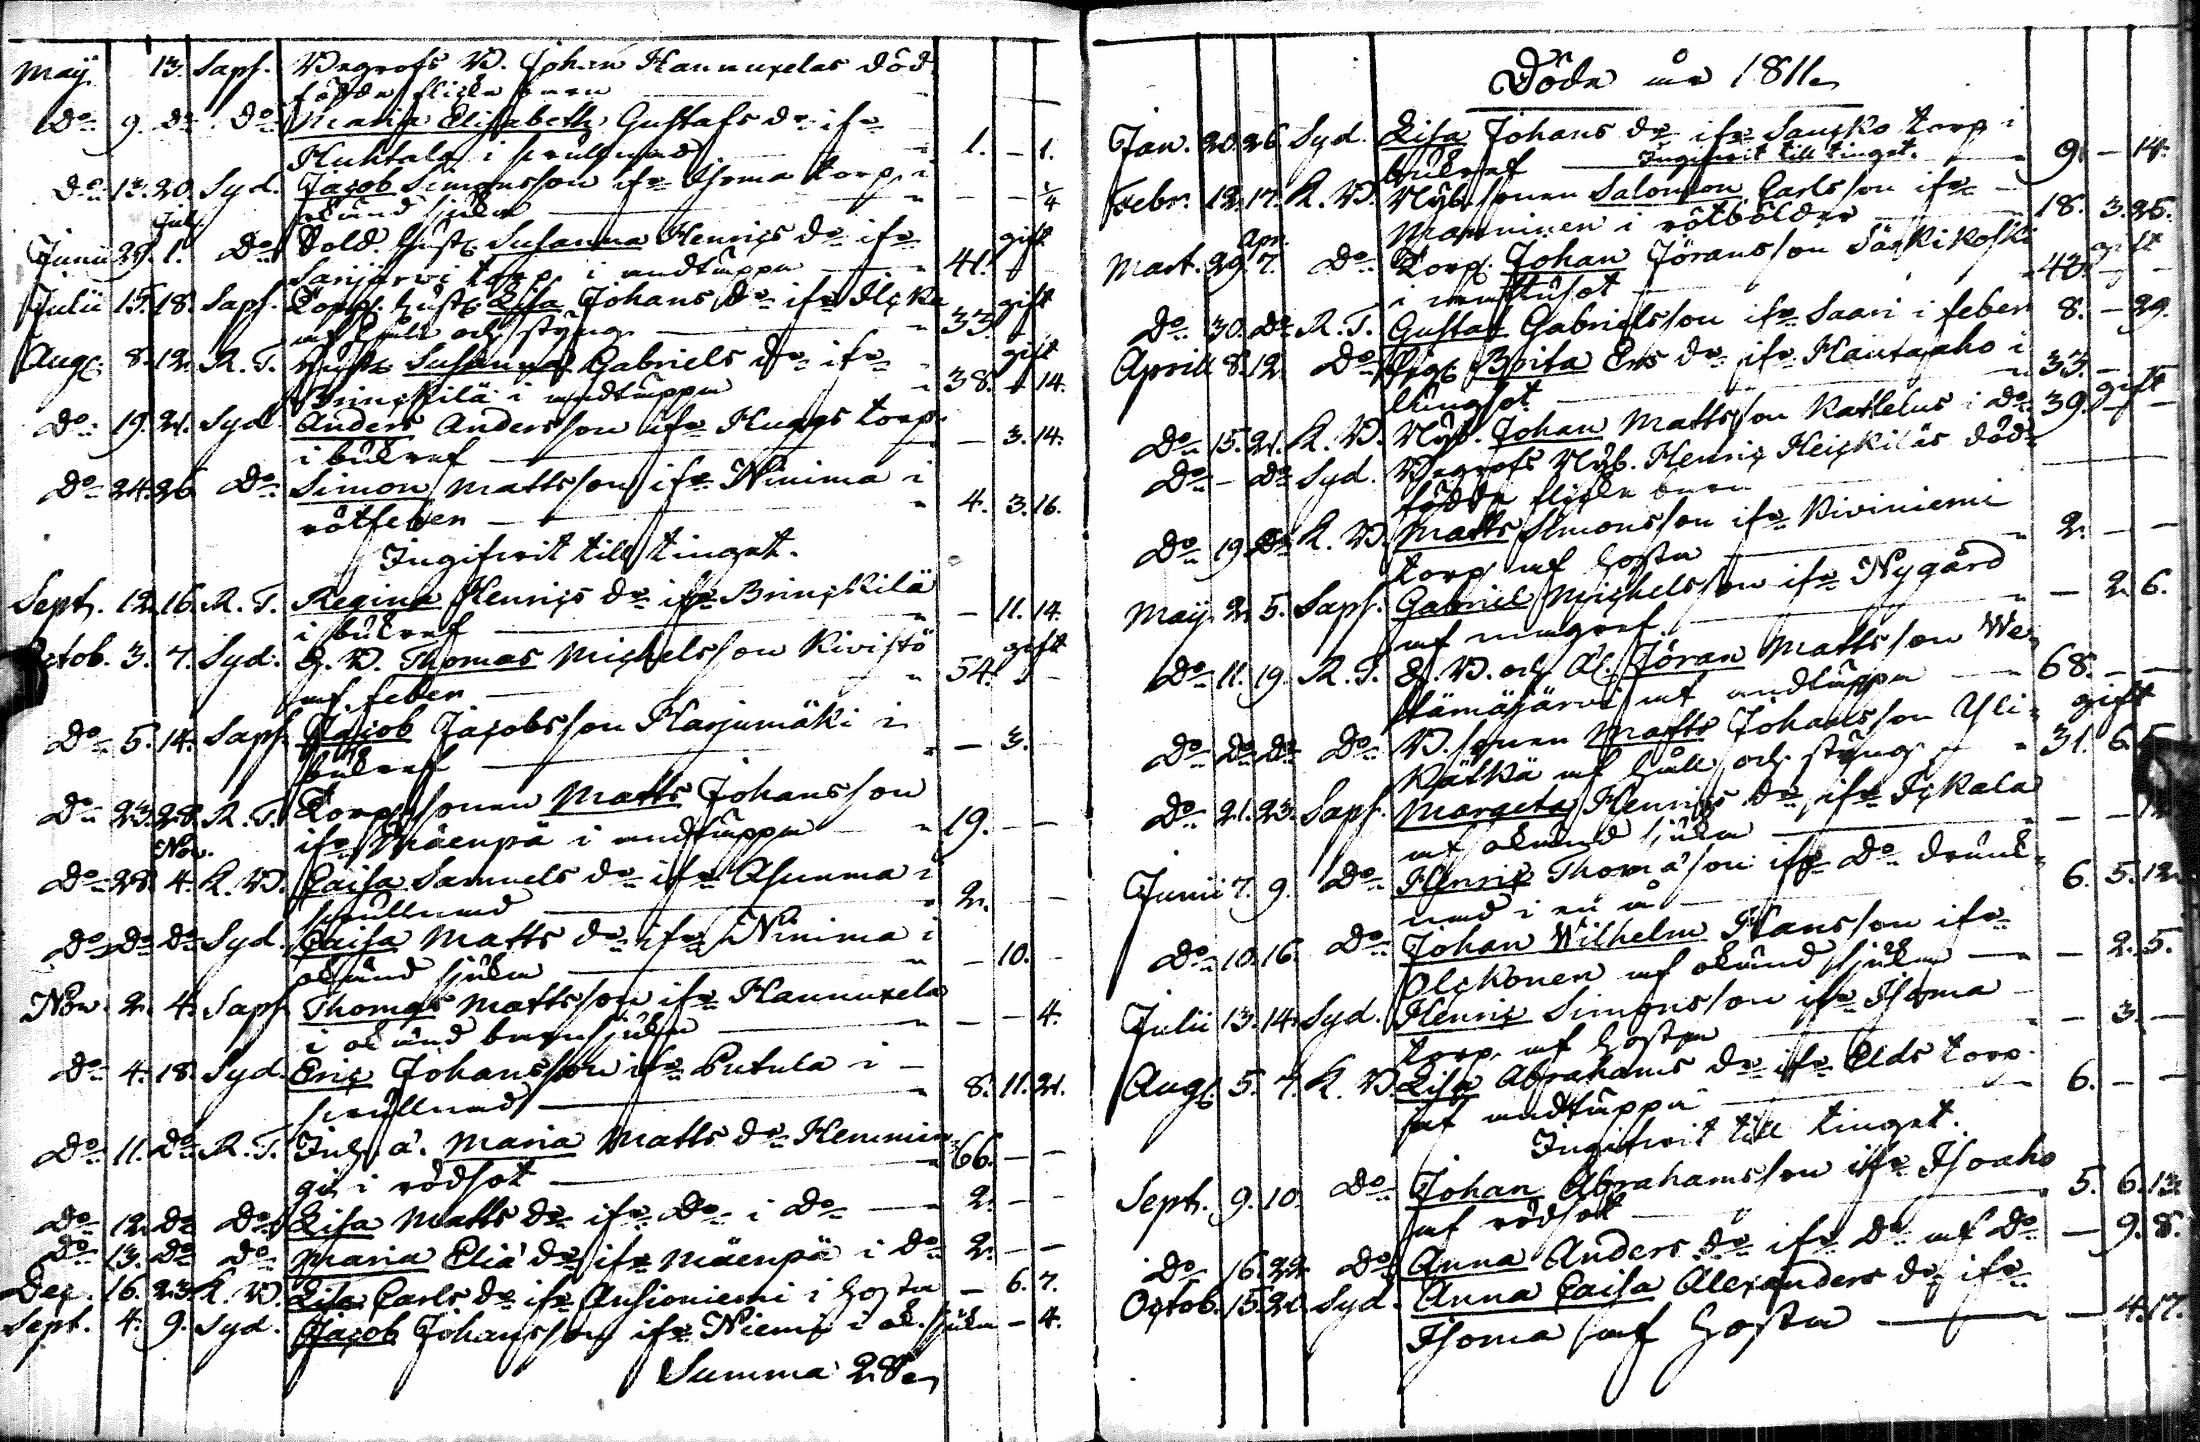 May 13. Saps. Wägrofs V. Johan Hannuxelas död-
födda flicke barn — —
Do 9. do do Maria Elisabeth Gustafs dr ifr
Huhtala i strullnad — 1. — 1.
Do 13. 20. Syd. Jacob Simonsson ifr Isoma torp. i
okänd sjuka — — — ¼
Jul.
Junii 29. 1. Do Sold. hust. Susanna Henrics dr ifr gift
Sarijärvi torp. i andtäppa — 41. — —
Julii 15. 18. Saps. Torp. hust. Lisa Johans dr ifr Ilcka gift
af håll och styng — 33.
Aug. 8. 12. R. T. Hust. Susanna Gabriels dr ifr gift
Brinckilä i andtäppa — 38. — 14.
Do 19. 21. Syd Anders Andersson ifr Knaps torp.
i bukref — — 3. 14.
Do 24. 26 Do Simon Mattsson ifr Ninima i
rötfeber — 4. 3. 16.
Ingifvit till tinget.
Sept. 12. 16. R. T. Regina Henrics dr ifr Brinckilä
i bukref — — 11. 14.
Octob. 3. 7. Syd. G. V. Thomas Michelsson Kivistö gift
af feber — 54. — —
Do 5. 14. Saps. Jacob Jacobsson Harjumäki i
bukref — — 3. —
Do 23. 28. R. T. Torp. sonen Matts Johansson
ifr Mäenpä i andtäppa — 19. — —
Nov.
Do 28. 4. K. V. Caisa Samuels dr ifr Asunma i
strullnad — 2. — —
Do Do do Syd. Caisa Matts dr ifr Ninima i
okänd sjuka — — 10. —
Nov. 2. 4. Saps. Thomas Mattsson ifr Hannuxela
i okänd barnsjuka — — — 4.
Do 4. 18. Syd. Eric Johansson ifr Putula i
strullnad — 8. 11. 21.
Do 11. do R. T. Inh. ä. Maria Matts dr Hemmin-
gi i rödsot — 66. — —
Do 12. do Do Lisa Matts dr ifr Do i Do — 2. — —
Do 13. do Do Maria Eliä dr ifr Mäenpä i Do 2. — —
Dec. 16. 23. K. V. Lisa Carls dr ifr Ansioniemi i hosta — 6. 7.
Sept. 4. 9. Syd. Jacob Johansson ifr Niemi i ok. sjuka — 4.
Summa 28
Döda år 1811
Jan. 20. 26. Syd. Lisa Johans dr ifr Saucko torp i
bukref — 9. — 14.
Ingifvit till tinget.
Febr. 12. 17. K. V. Nyb. sonen Salomon Carlsson ifr
Manninen i rötbölder — 18. 3. 25.
Apr.
Mart. 29. 7. Do Torp. Johan Jöransson Särkikoski gift
i — 42. — —
Do 30. do R. T. Gustav Gabrielsson ifr Saari i feber 8. — 29.
April 8. 12. Do Pig. Brita Ers dr ifr Hautaaho i
lungsot — 33. —
Do 15. 21. K. V. Nyb. Johan Mattsson Kattelus i Do 39. gift
Do — do Syd. Wägrofs Nyb. Henric Heickiläs död-
födda flicke barn — —
Do 19. do K. V. Matts Simonsson ifr Kiviniemi
torp af hosta — 2. — —
May. 2. 5. Saps. Gabriel Michelsson ifr Nygård
af magref — — 2. 6.
Do 11. 19. R. T. G. V. och Äl. Jöran Mattsson We-
hämäjärvi af andtäppa — 68. — —
Do do do Do V. sonen Matts Johansson Yli- gift
Kätkä af håll och styng — 31. 6.
Do 21. 23. Saps. Margeta Henrics dr ifr Ickala
af okänd sjuka — — — 12
Junii 7. 9. Do Henric Thomäson ifr Do drunk-
nad i en å — 6. 5. 12.
Do 10. 16. Do Johan Wilhelm Hansson ifr
Olckonen af okänd sjuka — — 2. 5.
Julii 13. 14. Syd. Henric Simonsson ifr Isoma
torp. af hosta — — 3. —
Aug. 5. 7. K. V. Lisa Abrahams dr ifr Elds torp.
af andtäppa — 6. — —
Ingifvit till tinget.
Sept. 9. 10. Do Johan Abrahamsson ifr Isoaho
af rödsot — 5. 6. 13.
Do 16. 22. Do Anna Anders dr ifr Do af Do — 9. 8.
Octob. 15. 21. Syd. Anna Caisa Alexanders dr ifr
Isoma af hosta — — 4. 17.